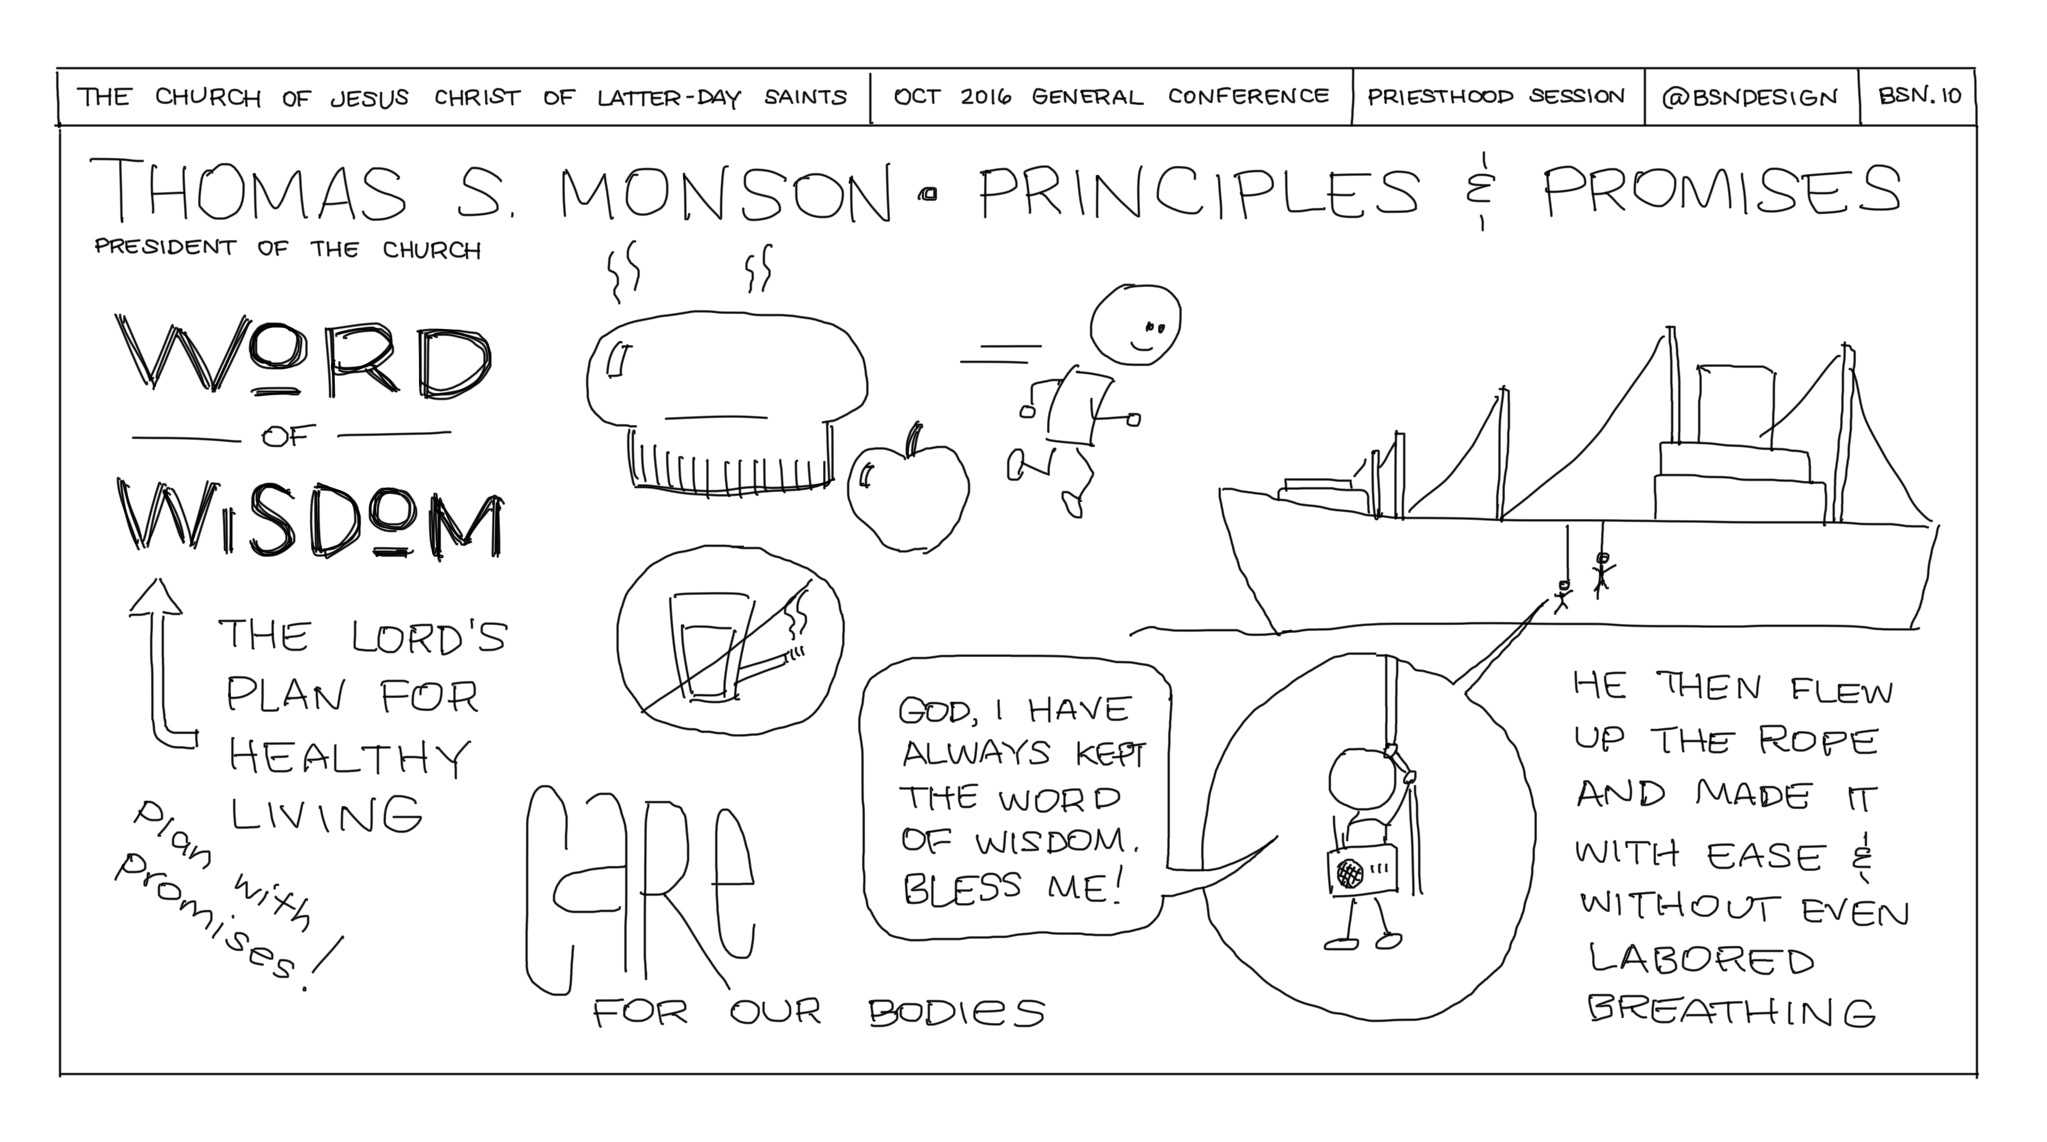 THE CHURCH OF JESUS CHRIST OF LATTER-DAY SAINTS
OCT 2016 GENERAL CONFERENCE
PRIESTHOOD SESSION
@BSNDESIGN
BSN.10
THOMAS S. MONSON • PRINCIPLES & PROMISES
PRESIDENT OF THE CHURCH
WORD
OF
WISDOM
THE LORD'S
PLAN FOR
HEALTHY
LIVING
Plan with
Promises!
CARe
FOR OUR BODIeS
GOD, I HAVE
ALWAYS KEPT
THE WORD
OF WISDOM.
BLESS ME!
HE THEN FLEW
UP THE ROPE
AND MADE IT
WITH EASE &
WITHOUT EVEN
LABORED
BREATHING